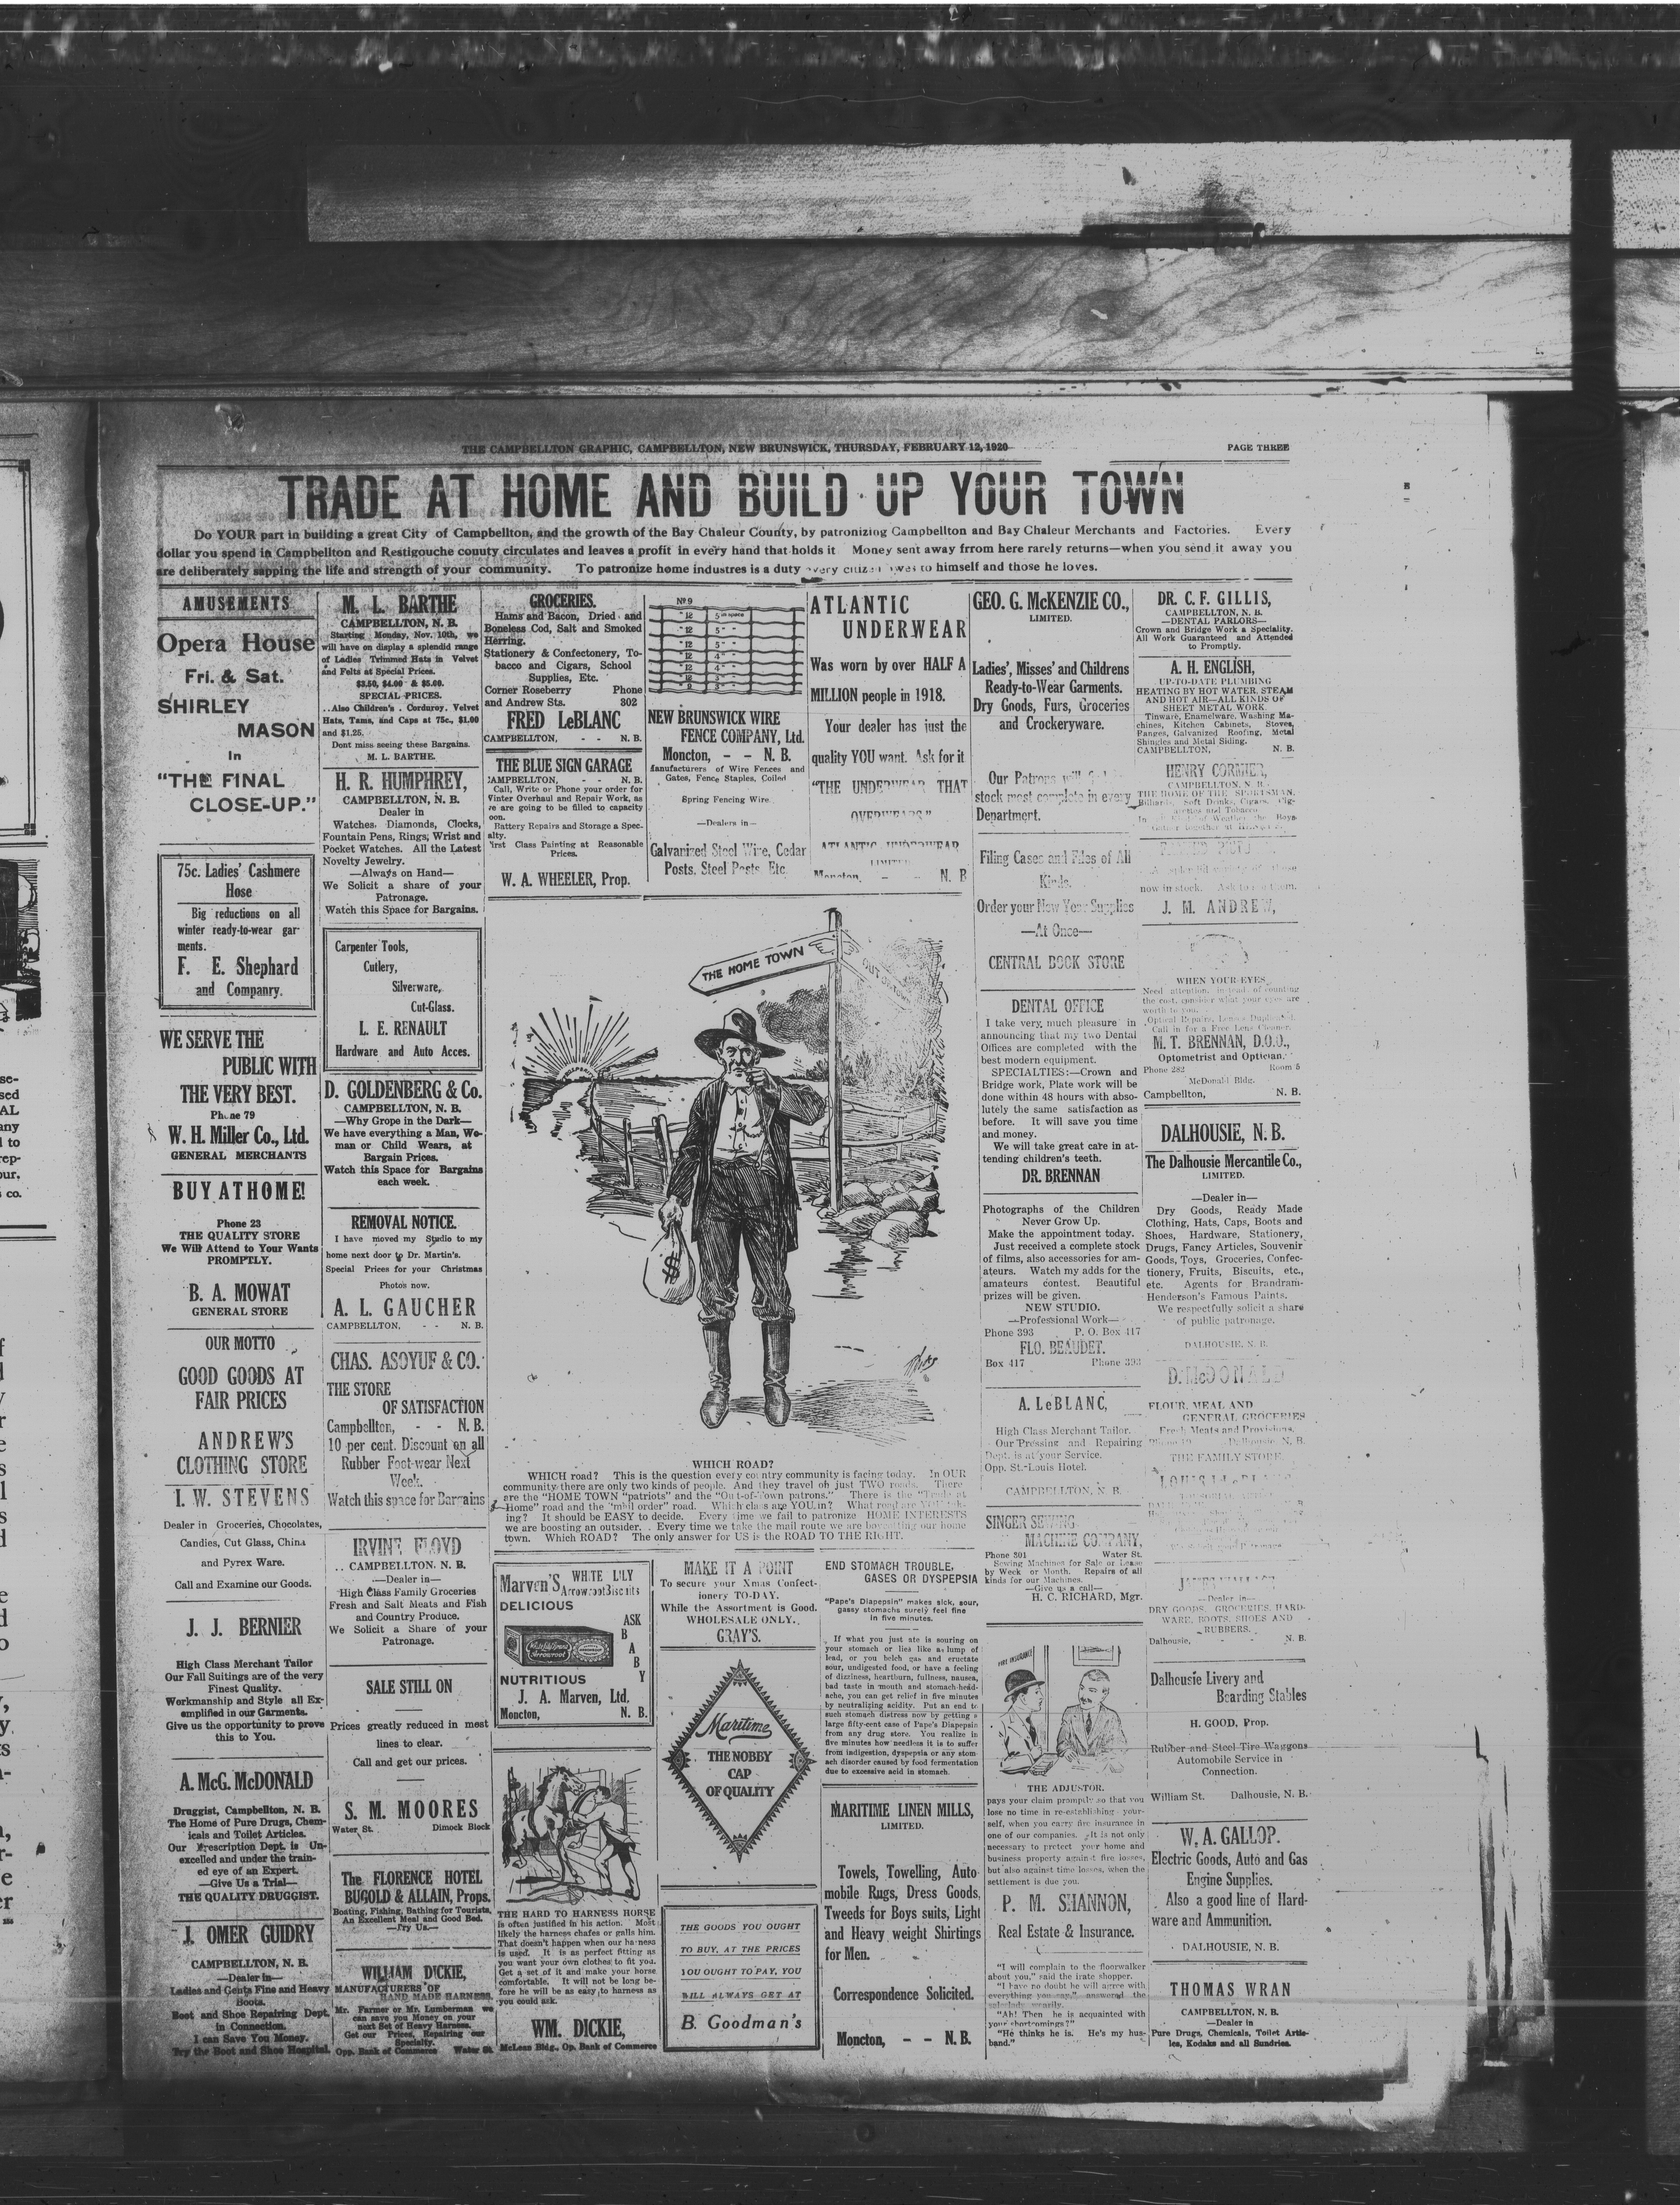 THE CAMPBELLTON GRAPHIC, CAMPBELLTON, NEW BRUNSWICK, THURSDAY, FEBRUARY 12, 1920
PAGE THREE
TRADE AT HOME AND BUILD UP YOUR TOWN
Do YOUR part in building a great City of Campbellton, and the growth of the Bay Chaleur County, by patronizing Campbellton and Bay Chaleur Merchants and Factories. Every
dollar you spend in Campbellton and Restigouche county circulates and leaves a profit in every hand that holds it Money sent away frrom here rarely returns—when you send it away you
are deliberately sapping the life and strength of your community. To patronize home industres is a duty every citizen owes to himself and those he loves.
AMUSEMENTS
Opera House
Fri. & Sat.
SHIRLEY
MASON
In
"THE FINAL
CLOSE-UP."
75c. Ladies' Cashmere
Hose
Big reductions on all
winter ready-to-wear gar-
ments.
F. E. Shephard
and Companry.
WE SERVE THE
PUBLIC WITH
THE VERY BEST.
Phone 79
W. H. Miller Co., Ltd.
GENERAL MERCHANTS
BUY AT HOME!
Phone 23
THE QUALITY STORE
We Will Attend to Your Wants
PROMPTLY.
B. A. MOWAT
GENERAL STORE
OUR MOTTO
GOOD GOODS AT
FAIR PRICES
ANDREW'S
CLOTHING STORE
I. W. STEVENS
Dealer in Groceries, Chocolates,
Candies, Cut Glass, China
and Pyrex Ware.
Call and Examine our Goods.
J. J. BERNIER
High Class Merchant Tailor
Our Fall Suitings are of the very
Finest Quality.
Workmanship and Style all Ex-
emplified in our Garments.
Give us the opportunity to prove
this to You.
A. McG. McDONALD
Druggist, Campbellton, N. B.
The Home of Pure Drugs, Chem-
icals and Toilet Articles.
Our Prescription Dept. is Un-
excelled and under the train-
ed eye of an Expert.
—Give Us a Trial—
THE QUALITY DRUGGIST.
J. OMER GUIDRY
CAMPBELLTON, N. B.
—Dealer in—
Ladies and Gents Fine and Heavy
Boots.
Boot and Shoe Repairing Dept.
in Connection.
I can Save You Money.
Try the Boot and Shoe Hospital.
M. L. BARTHE
CAMPBELLTON, N. B.
Starting Monday, Nov. 10th, we
will have on display a splendid range
of Ladies Trimmed Hats in Velvet
and Felts at Special Prices.
$3.50, $4.00 & $5.00.
SPECIAL PRICES.
..Also Children's . Corduroy, Velvet
Hats, Tams, and Caps at 75c., $1.00
and $1.25.
Dont miss seeing these Bargains.
M. L. BARTHE.
H. R. HUMPHREY,
CAMPBELLTON, N. B.
Dealer in
Watches, Diamonds, Clocks,
Fountain Pens, Rings, Wrist and
Pocket Watches. All the Latest
Novelty Jewelry.
—Always on Hand—
We Solicit a share of your
Patronage.
Watch this Space for Bargains.
Carpenter Tools,
Cutlery,
Silverware,
Cut-Glass.
L. E. RENAULT
Hardware and Auto Acces.
D. GOLDENBERG & Co.
CAMPBELLTON, N. B.
—Why Grope in the Dark—
We have everything a Man, Wo-
man or Child Wears, at
Bargain Prices.
Watch this Space for Bargains
each week.
REMOVAL NOTICE.
I have moved my Studio to my
home next door to Dr. Martin's.
Special Prices for your Christmas
Photos now.
A. L. GAUCHER
CAMPBELLTON, - - N. B.
CHAS. ASOYUF & CO.
THE STORE
OF SATISFACTION
Campbellton, - - N. B.
10 per cent. Discount on all
Rubber Foot-wear Next
Week.
Watch this space for Bargains
IRVINE FLOYD
.. CAMPBELLTON, N. B.
—Dealer in—
High Class Family Groceries
Fresh and Salt Meats and Fish
and Country Produce.
We Solicit a Share of your
Patronage.
SALE STILL ON
Prices greatly reduced in most
lines to clear.
Call and get our prices.
S. M. MOORES
Water St. Dimock Block
The FLORENCE HOTEL
BUGOLD & ALLAIN, Props.
Boating, Fishing, Bathing for Tourists,
An Excellent Meal and Good Bed.
—Try Us.—
WILLIAM DICKIE,
MANUFACTURERS OF
HAND MADE HARNESS,
Mr. Farmer or Mr. Lumberman we
can save you Money on your
next Set of Heavy Harness.
Get our Prices, Repairing our
Specialty.
Opp. Bank of Commerce Water St.
GROCERIES.
Hams and Bacon, Dried and
Boneless Cod, Salt and Smoked
Herring.
Stationery & Confectonery, To-
bacco and Cigars, School
Supplies, Etc.
Corner Roseberry Phone
and Andrew Sts. 302
FRED LeBLANC
CAMPBELLTON, - - N. B.
THE BLUE SIGN GARAGE
CAMPBELLTON, - - N. B.
Call, Write or Phone your order for
Winter Overhaul and Repair Work, as
we are going to be filled to capacity
oon.
Battery Repairs and Storage a Spec-
alty.
First Class Painting at Reasonable
Prices.
W. A. WHEELER, Prop.
No 9
NEW BRUNSWICK WIRE
FENCE COMPANY, Ltd.
Moncton, - - N. B.
Manufacturers of Wire Fences and
Gates, Fence Staples, Coiled
Spring Fencing Wire.
—Dealers in—
Galvanized Steel Wire, Cedar
Posts, Steel Posts, Etc.
ATLANTIC
UNDERWEAR
Was worn by over HALF A
MILLION people in 1918.
Your dealer has just the
quality YOU want. Ask for it
"THE UNDERWEAR THAT
OVERWEARS"
ATLANTIC UNDERWEAR
LIMITED
Moncton, - - N. B
THE HOME TOWN
OUT OF TOWN
$
WHICH ROAD?
WHICH road? This is the question every country community is facing today. In OUR
community there are only two kinds of people. And they travel oh just TWO roads. There
are the "HOME TOWN "patriots" and the "Out-of-Town patrons." There is the "Trade at
Home" road and the "mail order" road. Which class are YOU in? What road are YOU tak-
ing? It should be EASY to decide. Every time we fail to patronize HOME INTERESTS
we are boosting an outsider. . Every time we take the mail route we are boycotting our home
town. Which ROAD? The only answer for US is the ROAD TO THE RIGHT.
Marven's WHITE LILY
Arrowroot Biscuits
DELICIOUS
ASK
B
A
B
Y
NUTRITIOUS
J. A. Marven, Ltd.
Moncton, N. B.
THE HARD TO HARNESS HORSE
is often justified in his action. Most
likely the harness chafes or galls him.
That doesn't happen when our harness
is used. It is as perfect fitting as
you want your own clothes to fit you.
Get a set of it and make your horse
comfortable. It will not be long be-
fore he will be as easy to harness as
you could ask.
WM. DICKIE,
McLean Bldg., Op. Bank of Commerce
MAKE IT A POINT
To secure your Xmas Confect-
ionery TO-DAY.
While the Assortment is Good.
WHOLESALE ONLY.
GRAY'S.
Maritime
THE NOBBY
CAP
OF QUALITY
THE GOODS YOU OUGHT
TO BUY, AT THE PRICES
YOU OUGHT TO PAY, YOU
WILL ALWAYS GET AT
B. Goodman's
END STOMACH TROUBLE,
GASES OR DYSPEPSIA
"Pape's Diapepsin" makes sick, sour,
gassy stomachs surely feel fine
in five minutes.
If what you just ate is souring on
your stomach or lies like a lump of
lead, or you belch gas and eructate
sour, undigested food, or have a feeling
of dizziness, heartburn, fullness, nausea,
bad taste in mouth and stomach-head-
ache, you can get relief in five minutes
by neutralizing acidity. Put an end to
such stomach distress now by getting a
large fifty-cent case of Pape's Diapepsin
from any drug store. You realize in
five minutes how needless it is to suffer
from indigestion, dyspepsia or any stom-
ach disorder caused by food fermentation
due to excessive acid in stomach.
MARITIME LINEN MILLS,
LIMITED.
Towels, Towelling, Auto-
mobile Rugs, Dress Goods,
Tweeds for Boys suits, Light
and Heavy weight Shirtings
for Men.
Correspondence Solicited.
Moncton, - - N. B.
GEO. G. McKENZIE CO.,
LIMITED.
Ladies', Misses' and Childrens
Ready-to-Wear Garments.
Dry Goods, Furs, Groceries
and Crockeryware.
Our Patrons will find
stock most complete in every
Department.
Filing Cases and Files of All
Kinds.
Order your New Year Supplies
—At Once—
CENTRAL BOOK STORE
DENTAL OFFICE
I take very much pleasure in
announcing that my two Dental
Offices are completed with the
best modern equipment.
SPECIALTIES:—Crown and
Bridge work, Plate work will be
done within 48 hours with abso-
lutely the same satisfaction as
before. It will save you time
and money.
We will take great care in at-
tending children's teeth.
DR. BRENNAN
Photographs of the Children
Never Grow Up.
Make the appointment today.
Just received a complete stock
of films, also accessories for am-
ateurs. Watch my adds for the
amateurs contest. Beautiful
prizes will be given.
NEW STUDIO.
—Professional Work—
Phone 393 P. O. Box 417
FLO. BEAUDET.
Box 417 Phone 393
A. LeBLANC,
High Class Merchant Tailor.
Our Pressing and Repairing
Dept. is at your Service.
Opp. St. Louis Hotel.
CAMPBELLTON, N. B.
SINGER SEWING
MACHINE COMPANY,
Phone 301 Water St.
Sewing Machines for Sale or Lease
by Week or Month. Repairs of all
kinds for our Machines.
—Give us a call—
H. C. RICHARD, Mgr.
FIRE INSURANCE
THE ADJUSTOR.
pays your claim promptly so that you
lose no time in re-establishing your-
self, when you carry fire insurance in
one of our companies. It is not only
necessary to protect your home and
business property against fire losses,
but also against time losses, when the
settlement is due you.
P. M. SHANNON,
Real Estate & Insurance.
"I will complain to the floorwalker
about you," said the irate shopper.
"I have no doubt he will agree with
everything you say," answered the
saleslady wearily.
"Ah! Then he is acquainted with
your shortcomings?"
"He thinks he is. He's my hus-
band."
DR. C. F. GILLIS,
CAMPBELLTON, N. B.
—DENTAL PARLORS—
Crown and Bridge Work a Speciality.
All Work Guaranteed and Attended
to Promptly.
A. H. ENGLISH,
UP-TO-DATE PLUMBING
HEATING BY HOT WATER, STEAM
AND HOT AIR—ALL KINDS OF
SHEET METAL WORK.
Tinware, Enamelware, Washing Ma-
chines, Kitchen Cabinets, Stoves,
Ranges, Galvanized Roofing, Metal
Shingles and Metal Siding.
CAMPBELLTON, N. B.
HENRY CORMIER,
CAMPBELLTON, N. B.
THE HOME OF THE SPORTSMAN.
Billiards, Soft Drinks, Cigars, Cig-
arettes and Tobacco.
now in stock. Ask to see them.
J. M. ANDREW,
WHEN YOUR EYES
Need attention, instead of counting
the cost, consider what your eyes are
worth to you.
Optical Repairs, Lenses Duplicated.
Call in for a Free Lens Cleaner.
M. T. BRENNAN, D.O.O.,
Optometrist and Optician.
Phone 282 Room 5
McDonald Bldg.
Campbellton, N. B.
DALHOUSIE, N. B.
The Dalhousie Mercantile Co.,
LIMITED.
—Dealer in—
Dry Goods, Ready Made
Clothing, Hats, Caps, Boots and
Shoes, Hardware, Stationery,
Drugs, Fancy Articles, Souvenir
Goods, Toys, Groceries, Confec-
tionery, Fruits, Biscuits, etc.,
etc. Agents for Brandram-
Henderson's Famous Paints.
We respectfully solicit a share
of public patronage.
DALHOUSIE, N. B.
D. McDONALD
FLOUR, MEAL AND
GENERAL GROCERIES
Fresh Meats and Provisions.
Dalhousie, N. B.
THE FAMILY STORE
—Dealer in—
DRY GOODS, GROCERIES, HARD-
WARE, BOOTS, SHOES AND
RUBBERS.
Dalhousie, - - N. B.
Dalhousie Livery and
Boarding Stables
H. GOOD, Prop.
Rubber and Steel Tire Waggons
Automobile Service in
Connection.
William St. Dalhousie, N. B.
W. A. GALLOP.
Electric Goods, Auto and Gas
Engine Supplies.
Also a good line of Hard-
ware and Ammunition.
DALHOUSIE, N. B.
THOMAS WRAN
CAMPBELLTON, N. B.
—Dealer in
Pure Drugs, Chemicals, Toilet Artic-
les, Kodaks and all Sundries.